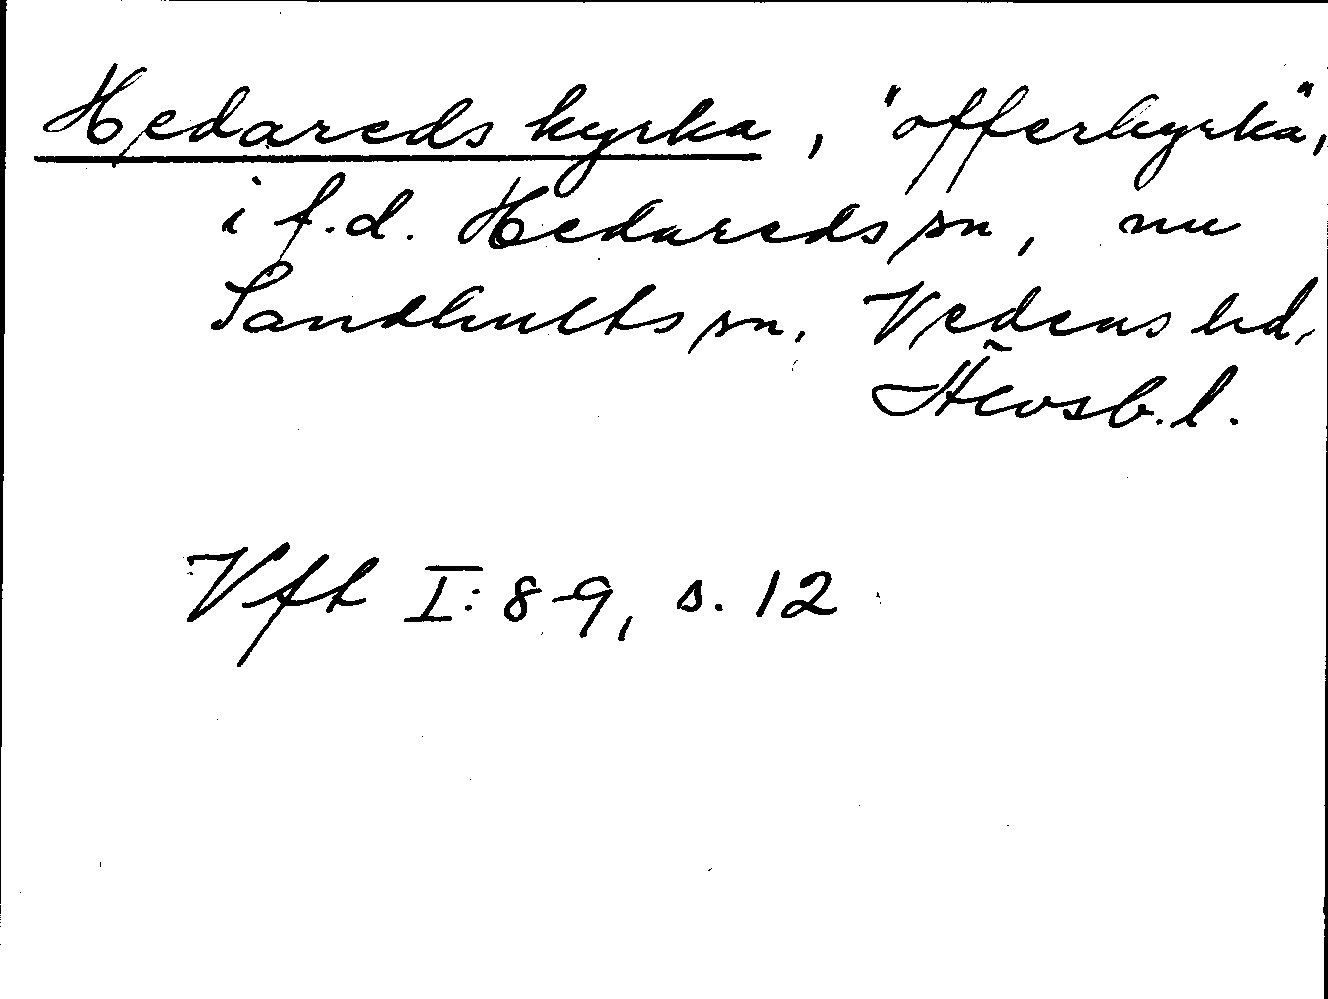 Hedareds kyrka, "offerkyrka",
i f.d. Hedareds sn, nu
Sandhults sn, Vedens hd,
Älvsb.l.
Vft I:8-9, s. 12